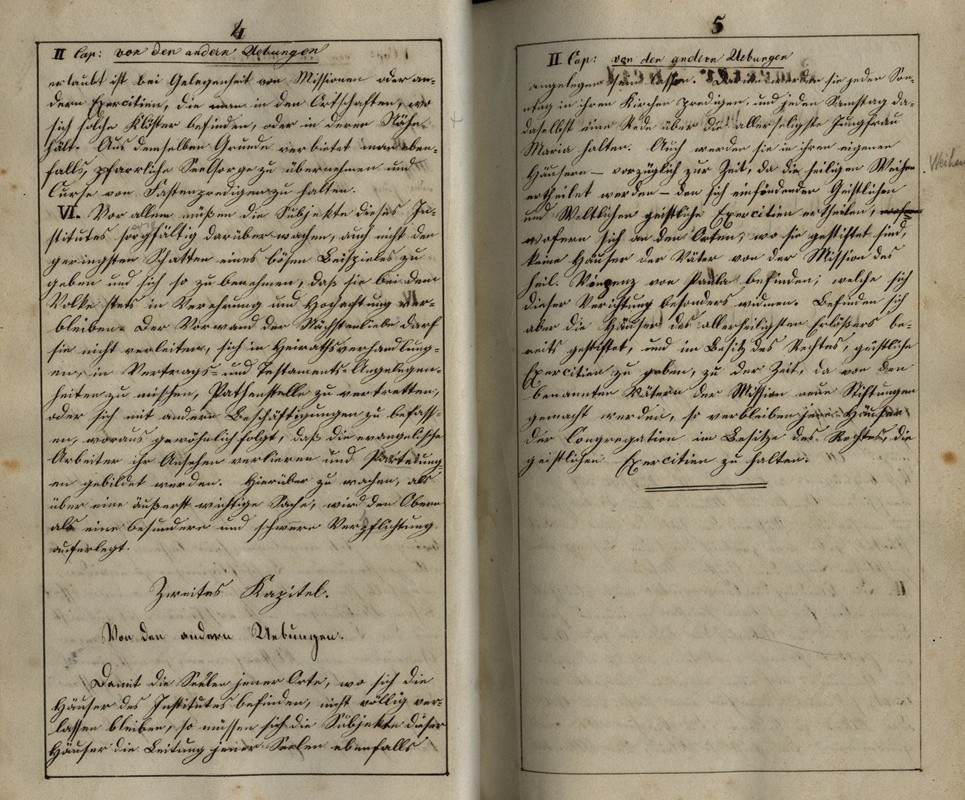 4
II Cap: von den andern Uebungen
erlaubt ist bei Gelegenheit von Missionen oder an-
dern Exercitien, die man in den Ortschaften, wo
sich solche Klöster befinden, oder in deren Nähe
hält. Aus demselben Grunde verbietet man eben-
falls, pfarrliche Seelsorge zu übernehmen und
Curse von Fastenpredigen zu halten.
VI. Vor allem müßen die Subjekte dieses In-
stitutes sorgfältig darüber wachen, auch nicht den
geringsten Schatten eines bösen Beispieles zu
geben und sich so zu benehmen, daß sie bei dem
Volke stets in Verehrung und Hochachtung ver-
bleiben. Der Vorwand der Nächstenliebe darf
sie nicht verleiten, sich in Heirathsverhandlung-
en, in Vertrags- und Testaments-Angelegen-
heiten zu mischen, Pathenstelle zu vertretten,
oder sich mit andern Beschäftigungen zu befass-
en, woraus gewöhnlich folgt, daß die evangelische
Arbeiter ihr Ansehen verlieren und Parteiung-
en gebildet werden. Hierüber zu wachen, als
über eine äußerst wichtige Sache, wird den Obern
als eine besondere und schwere Verpflichtung
auferlegt.
Zweites Kapitel.
Von den andern Uebungen.
Damit die Seelen jener Orte, wo sich die
Häuser des Institutes befinden, nicht völlig ver-
lassen bleiben, so müssen sich die Subjekte dieser
Häuser die Leitung jener Seelen ebenfalls
5
II Cap: von den andern Uebungen
angelegen sein lassen. sie jeden Son-
ntag in ihren Kirchen predigen, und jeden Samstag da-
daselbst eine Rede über die allerseligste Jungfrau
Maria halten. Auch werden sie in ihren eigenen
Häusern – vorzüglich zur Zeit, da die heiligen Weihen
Weihen
ertheilet werden – den sich einfindenden Geistlichen
und Weltlichen geistliche Exercitien ertheilen,
wofern sich an den Orten, wo sie gestiftet sind,
keine Häuser der Väter von der Mission des
heil. Vinzenz von Paula befinden, welche sich
dieser Verichtung besonders widmen. Befinden sich
aber die Häuser des allerheiligsten Erlößers be-
reits gestiftet, und im Besitz des Rechtes, geistliche
Exercitien zu geben, zu der Zeit, da von den
benannten Vätern der Mission neue Stiftungen
gemacht werden, so verbleiben jene Häuser
der Congregation im Besitze des Rechtes, die
geistlichen Exercitien zu halten.